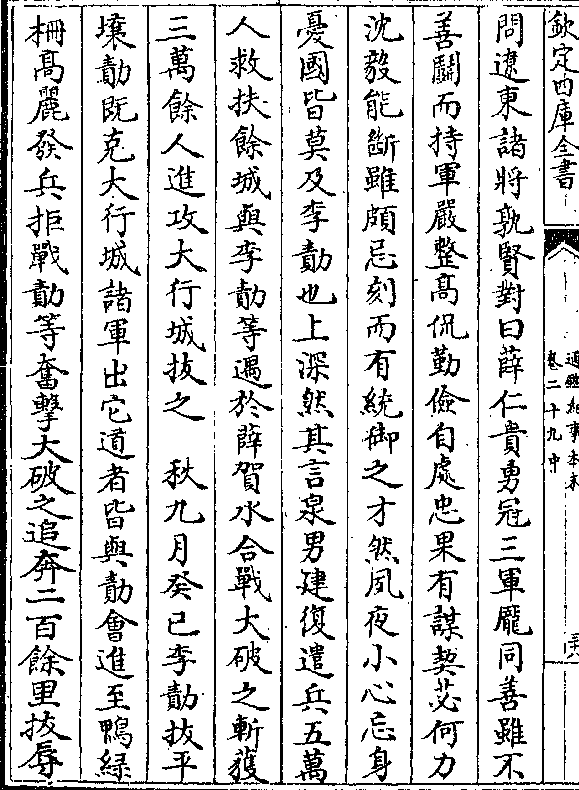 欽定四庫全書
通鑑紀事本末
卷二十九中
問遼東諸將孰賢對曰薛仁貴勇冠三軍龐同善雖不
善鬬而持軍嚴整髙侃勤儉自處忠果有謀契苾何力
沈毅能斷雖頗忌刻而有統御之才然夙夜小心忘身
憂國皆莫及李勣也上深然其言泉男建復遣兵五萬
人救扶餘城與李勣等遇於薛賀水合戰大破之斬獲
三萬餘人進攻大行城拔之 秋九月癸巳李勣拔平
壤勣既克大行城諸軍出它道者皆與勣會進至鴨緑
柵髙麗發兵拒戰勣等奮擊大破之追奔二百餘里拔辱